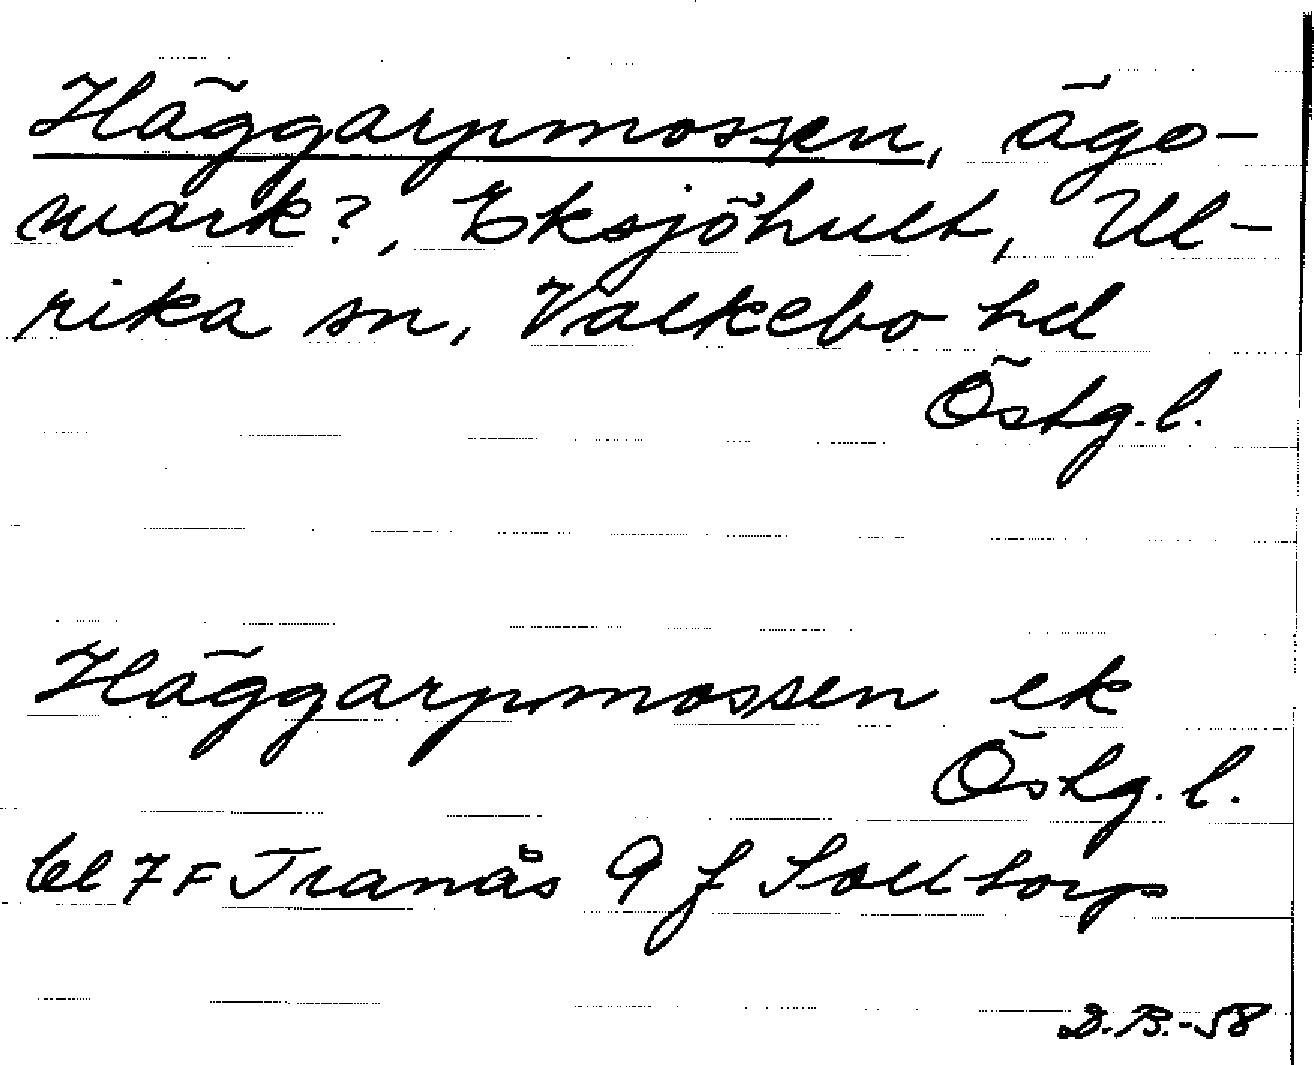 Häggarpmossen, ägo-
mark?, Eksjöhult, Ul-
rika sn, Valkebo hd
Östg.l.
Häggarpmossen ek
Östg.l.
bl 7F Tranås 9 f Solltorp
D.B.-58